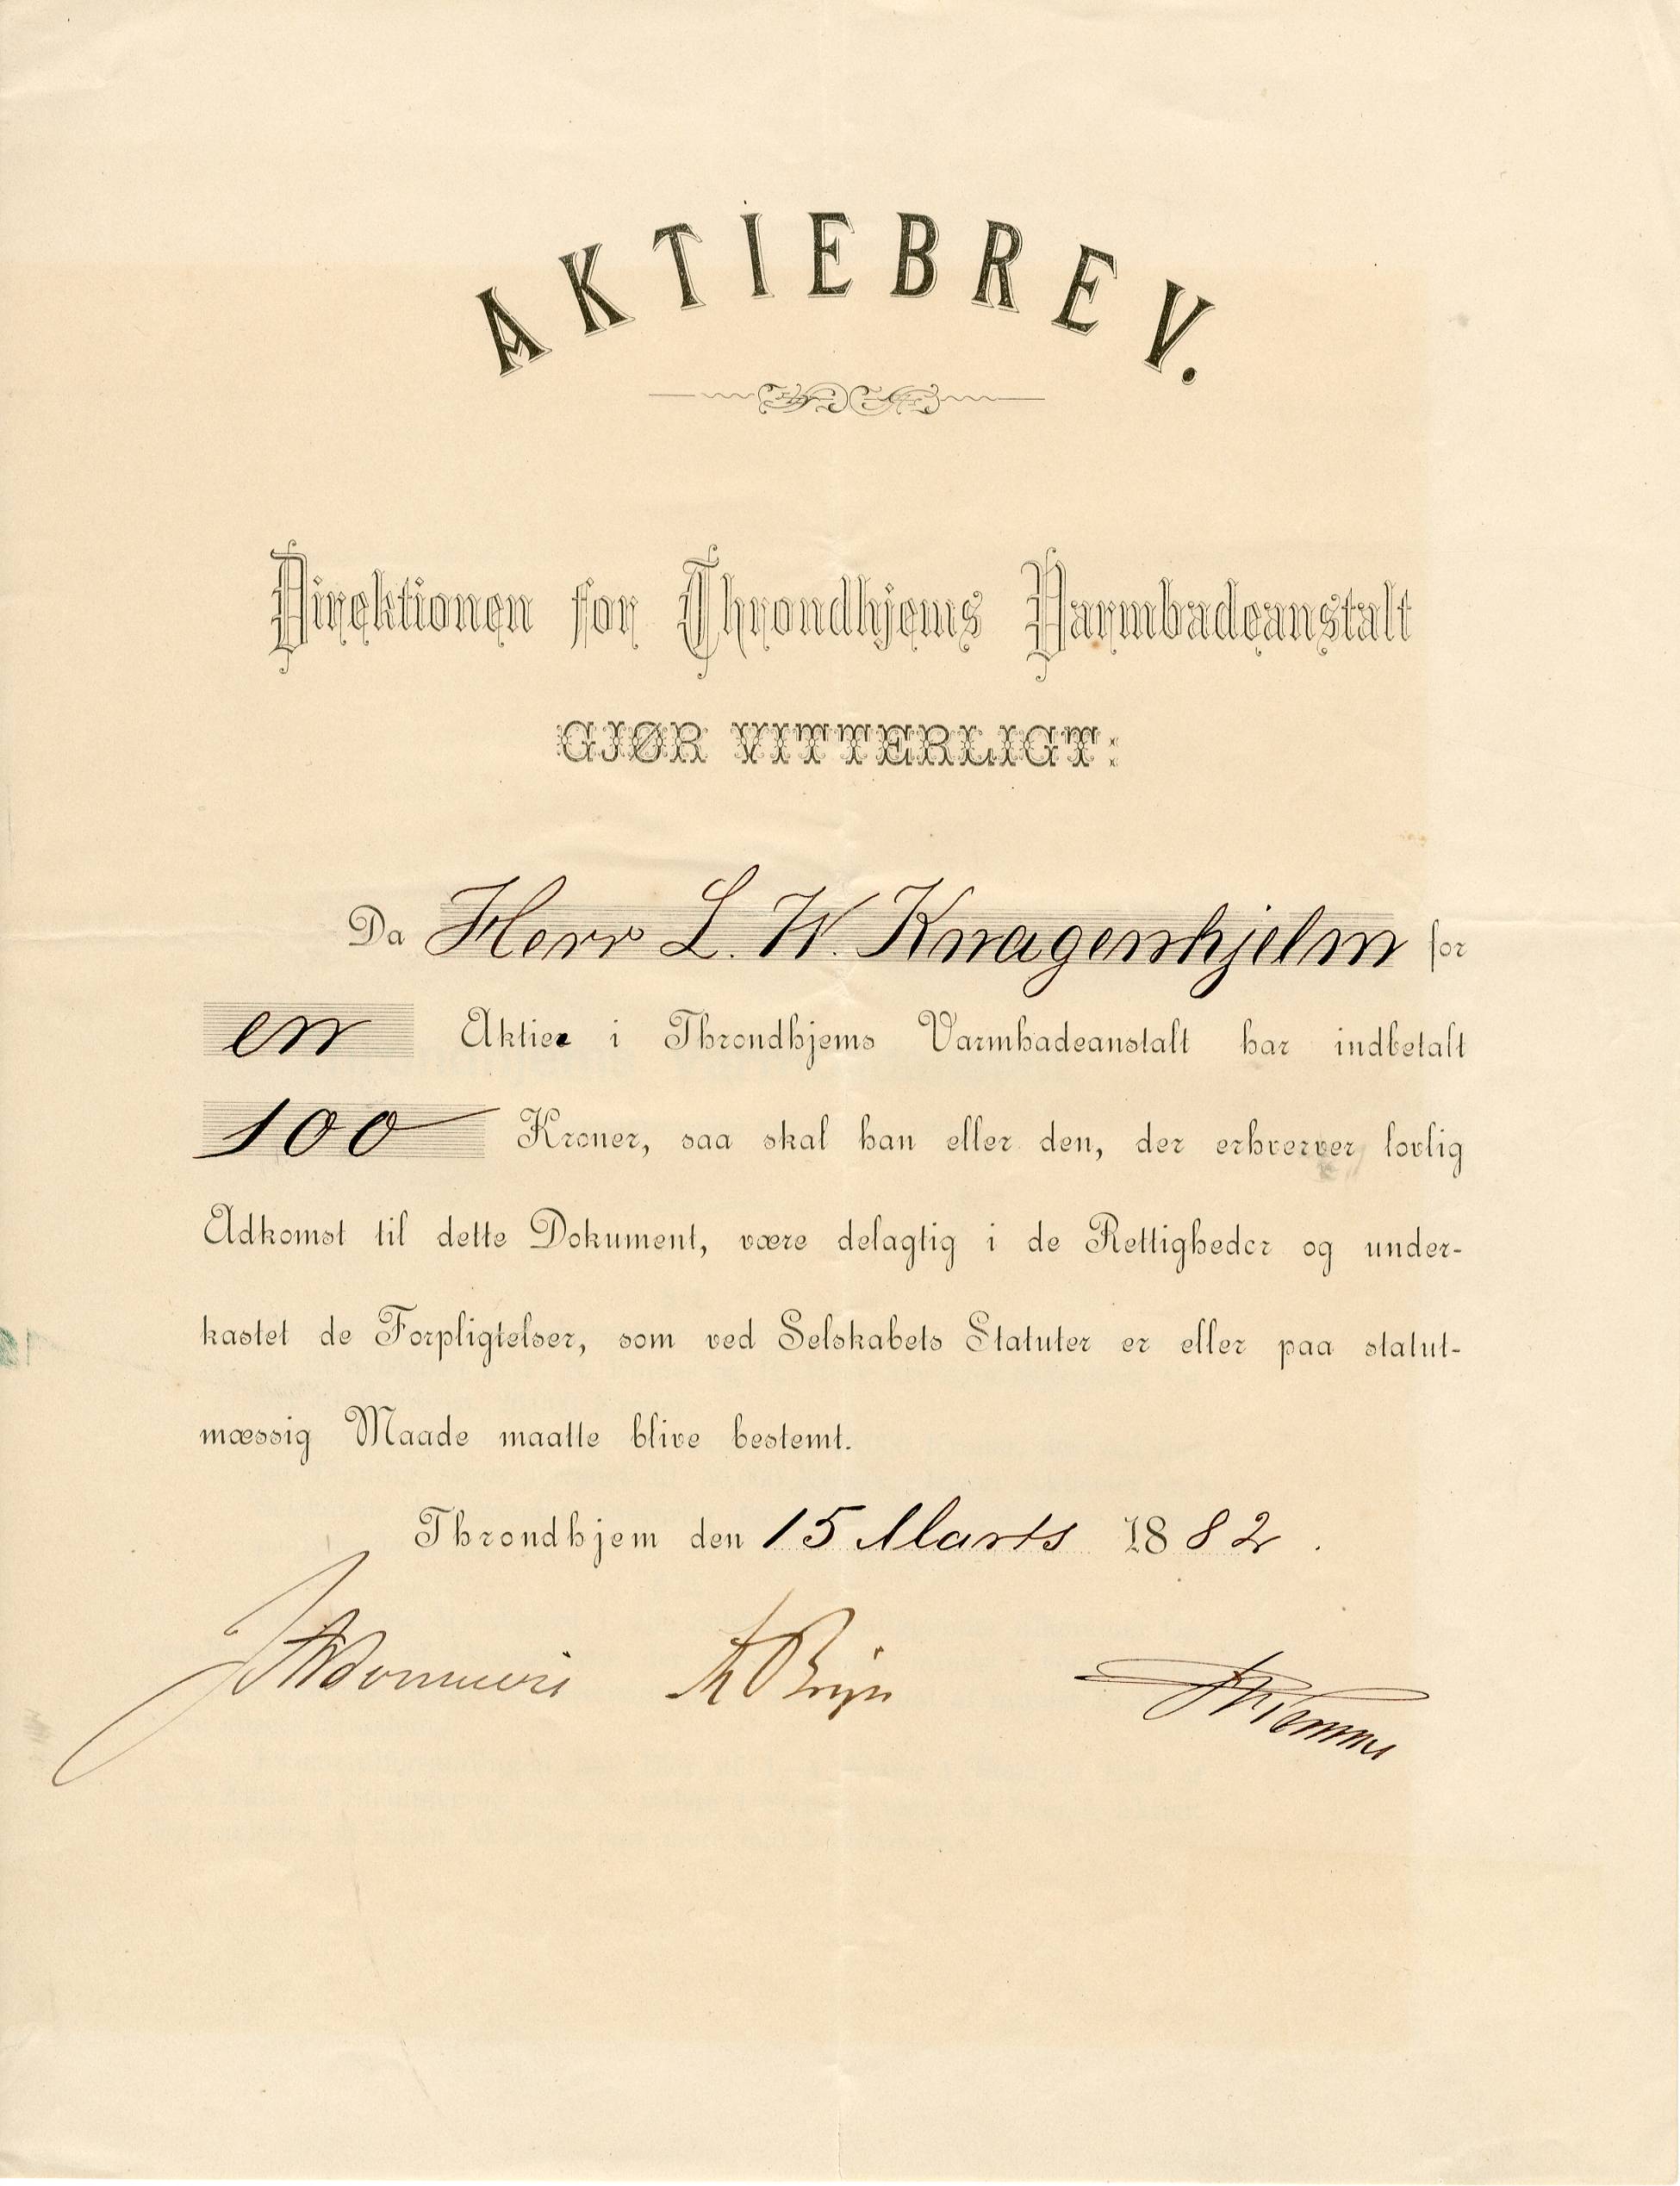 AKTIEBREV.
Direktionen for Throndhjems Varmbadeanstalt
GJØR VITTERLIGT:
Da Herr L. W. Knagenhjelm for
en Aktier i Throndhjems Varmbadeanstalt har indbetalt
100 Kroner, saa skal han eller den, der erhverver lovlig
Adkomst til dette Dokument, være delagtig i de Rettigheder og under-
kastet de Forpligtelser, som ved Selskabets Statuter er eller paa statut-
mæssig Maade maatte blive bestemt.
Throndhjem den 15 Marts 1882.